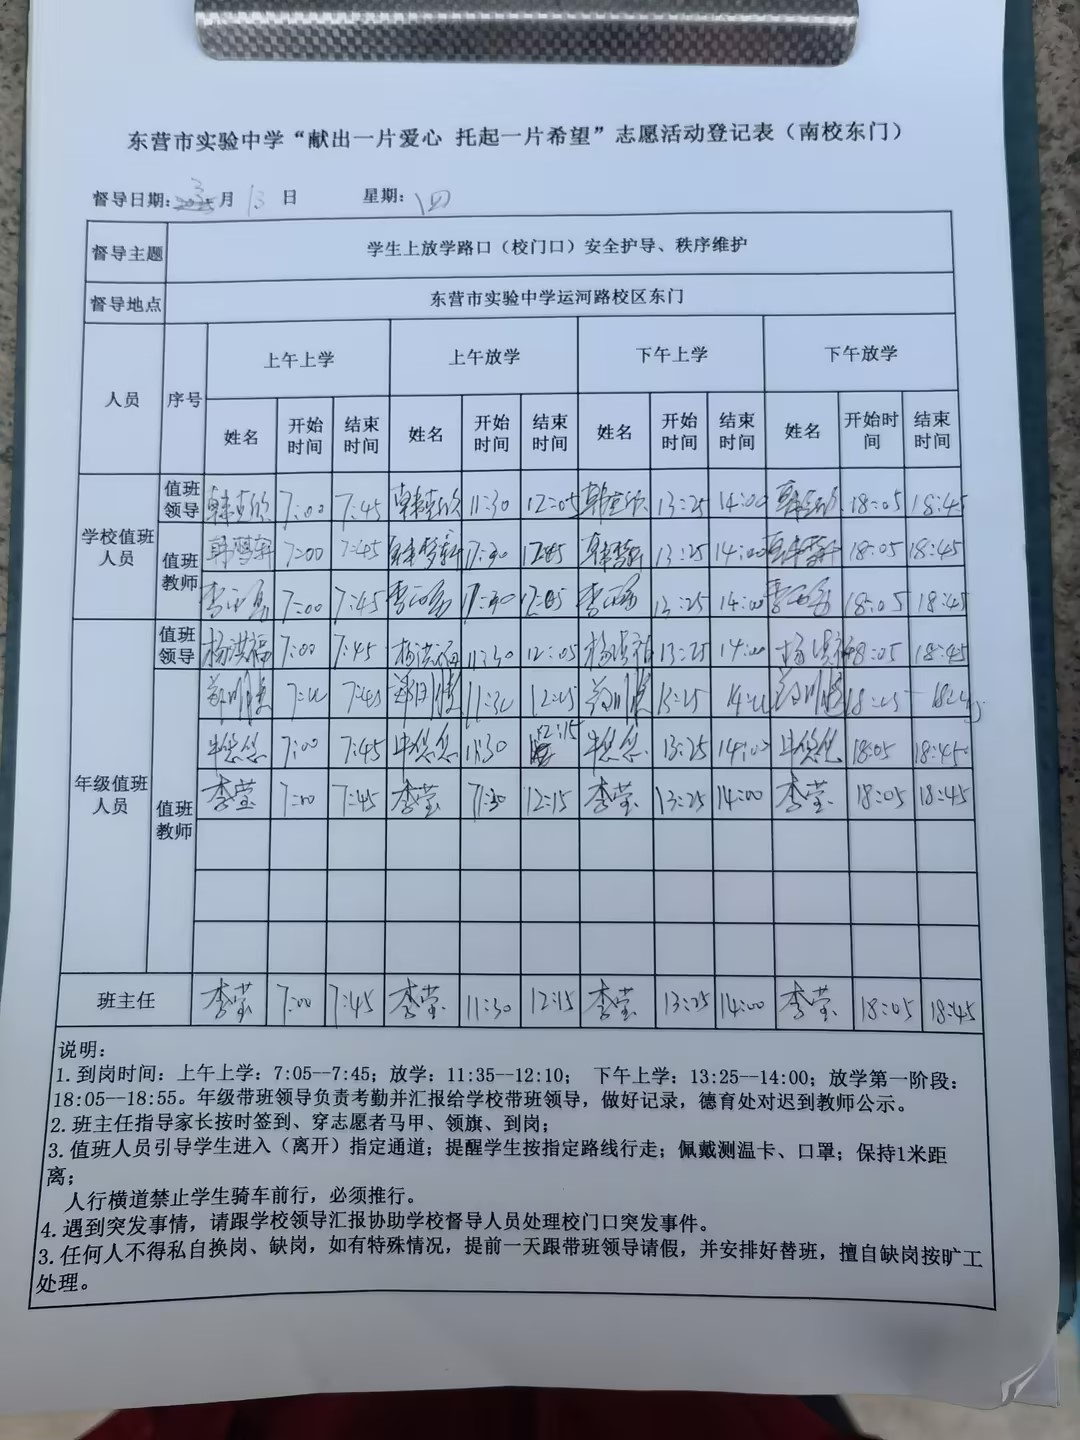 东营市实验中学“献出一片爱心 托起一片希望”志愿活动登记表（南校东门）
督导日期: 3月 13 日 星期: 四
督导主题 学生上放学路口（校门口）安全护导、秩序维护
督导地点 东营市实验中学运河路校区东门
人员 序号 上午上学 上午放学 下午上学 下午放学
姓名 开始时间 结束时间 姓名 开始时间 结束时间 姓名 开始时间 结束时间 姓名 开始时间 结束时间
学校值班人员 值班领导 7:00 7:45 11:30 12:05 13:25 14:00 18:05 18:45
值班教师 7:00 7:45 13:25 14:00 18:05 18:45
7:00 7:45 13:25 14:00 18:05 18:45
年级值班人员 值班领导 杨洪福 7:00 7:45 杨洪福 11:30 12:05 杨洪福 13:25 14:00 杨洪福 18:05 18:45
值班教师 7:45 13:25
7:00 7:45 11:30 12:15 13:25 14:00 18:05 18:45
李莹 7:00 7:45 李莹 12:15 李莹 13:25 14:00 李莹 18:05 18:45
班主任 李莹 7:00 7:45 李莹 11:30 12:15 李莹 13:25 14:00 李莹 18:05 18:45
说明：
1.到岗时间：上午上学：7:05--7:45；放学：11:35--12:10； 下午上学：13:25--14:00；放学第一阶段：
18:05--18:55。年级带班领导负责考勤并汇报给学校带班领导，做好记录，德育处对迟到教师公示。
2.班主任指导家长按时签到、穿志愿者马甲、领旗、到岗；
3.值班人员引导学生进入（离开）指定通道；提醒学生按指定路线行走；佩戴测温卡、口罩；保持1米距
离；
人行横道禁止学生骑车前行，必须推行。
4.遇到突发事情，请跟学校领导汇报协助学校督导人员处理校门口突发事件。
3.任何人不得私自换岗、缺岗，如有特殊情况，提前一天跟带班领导请假，并安排好替班，擅自缺岗按旷工
处理。